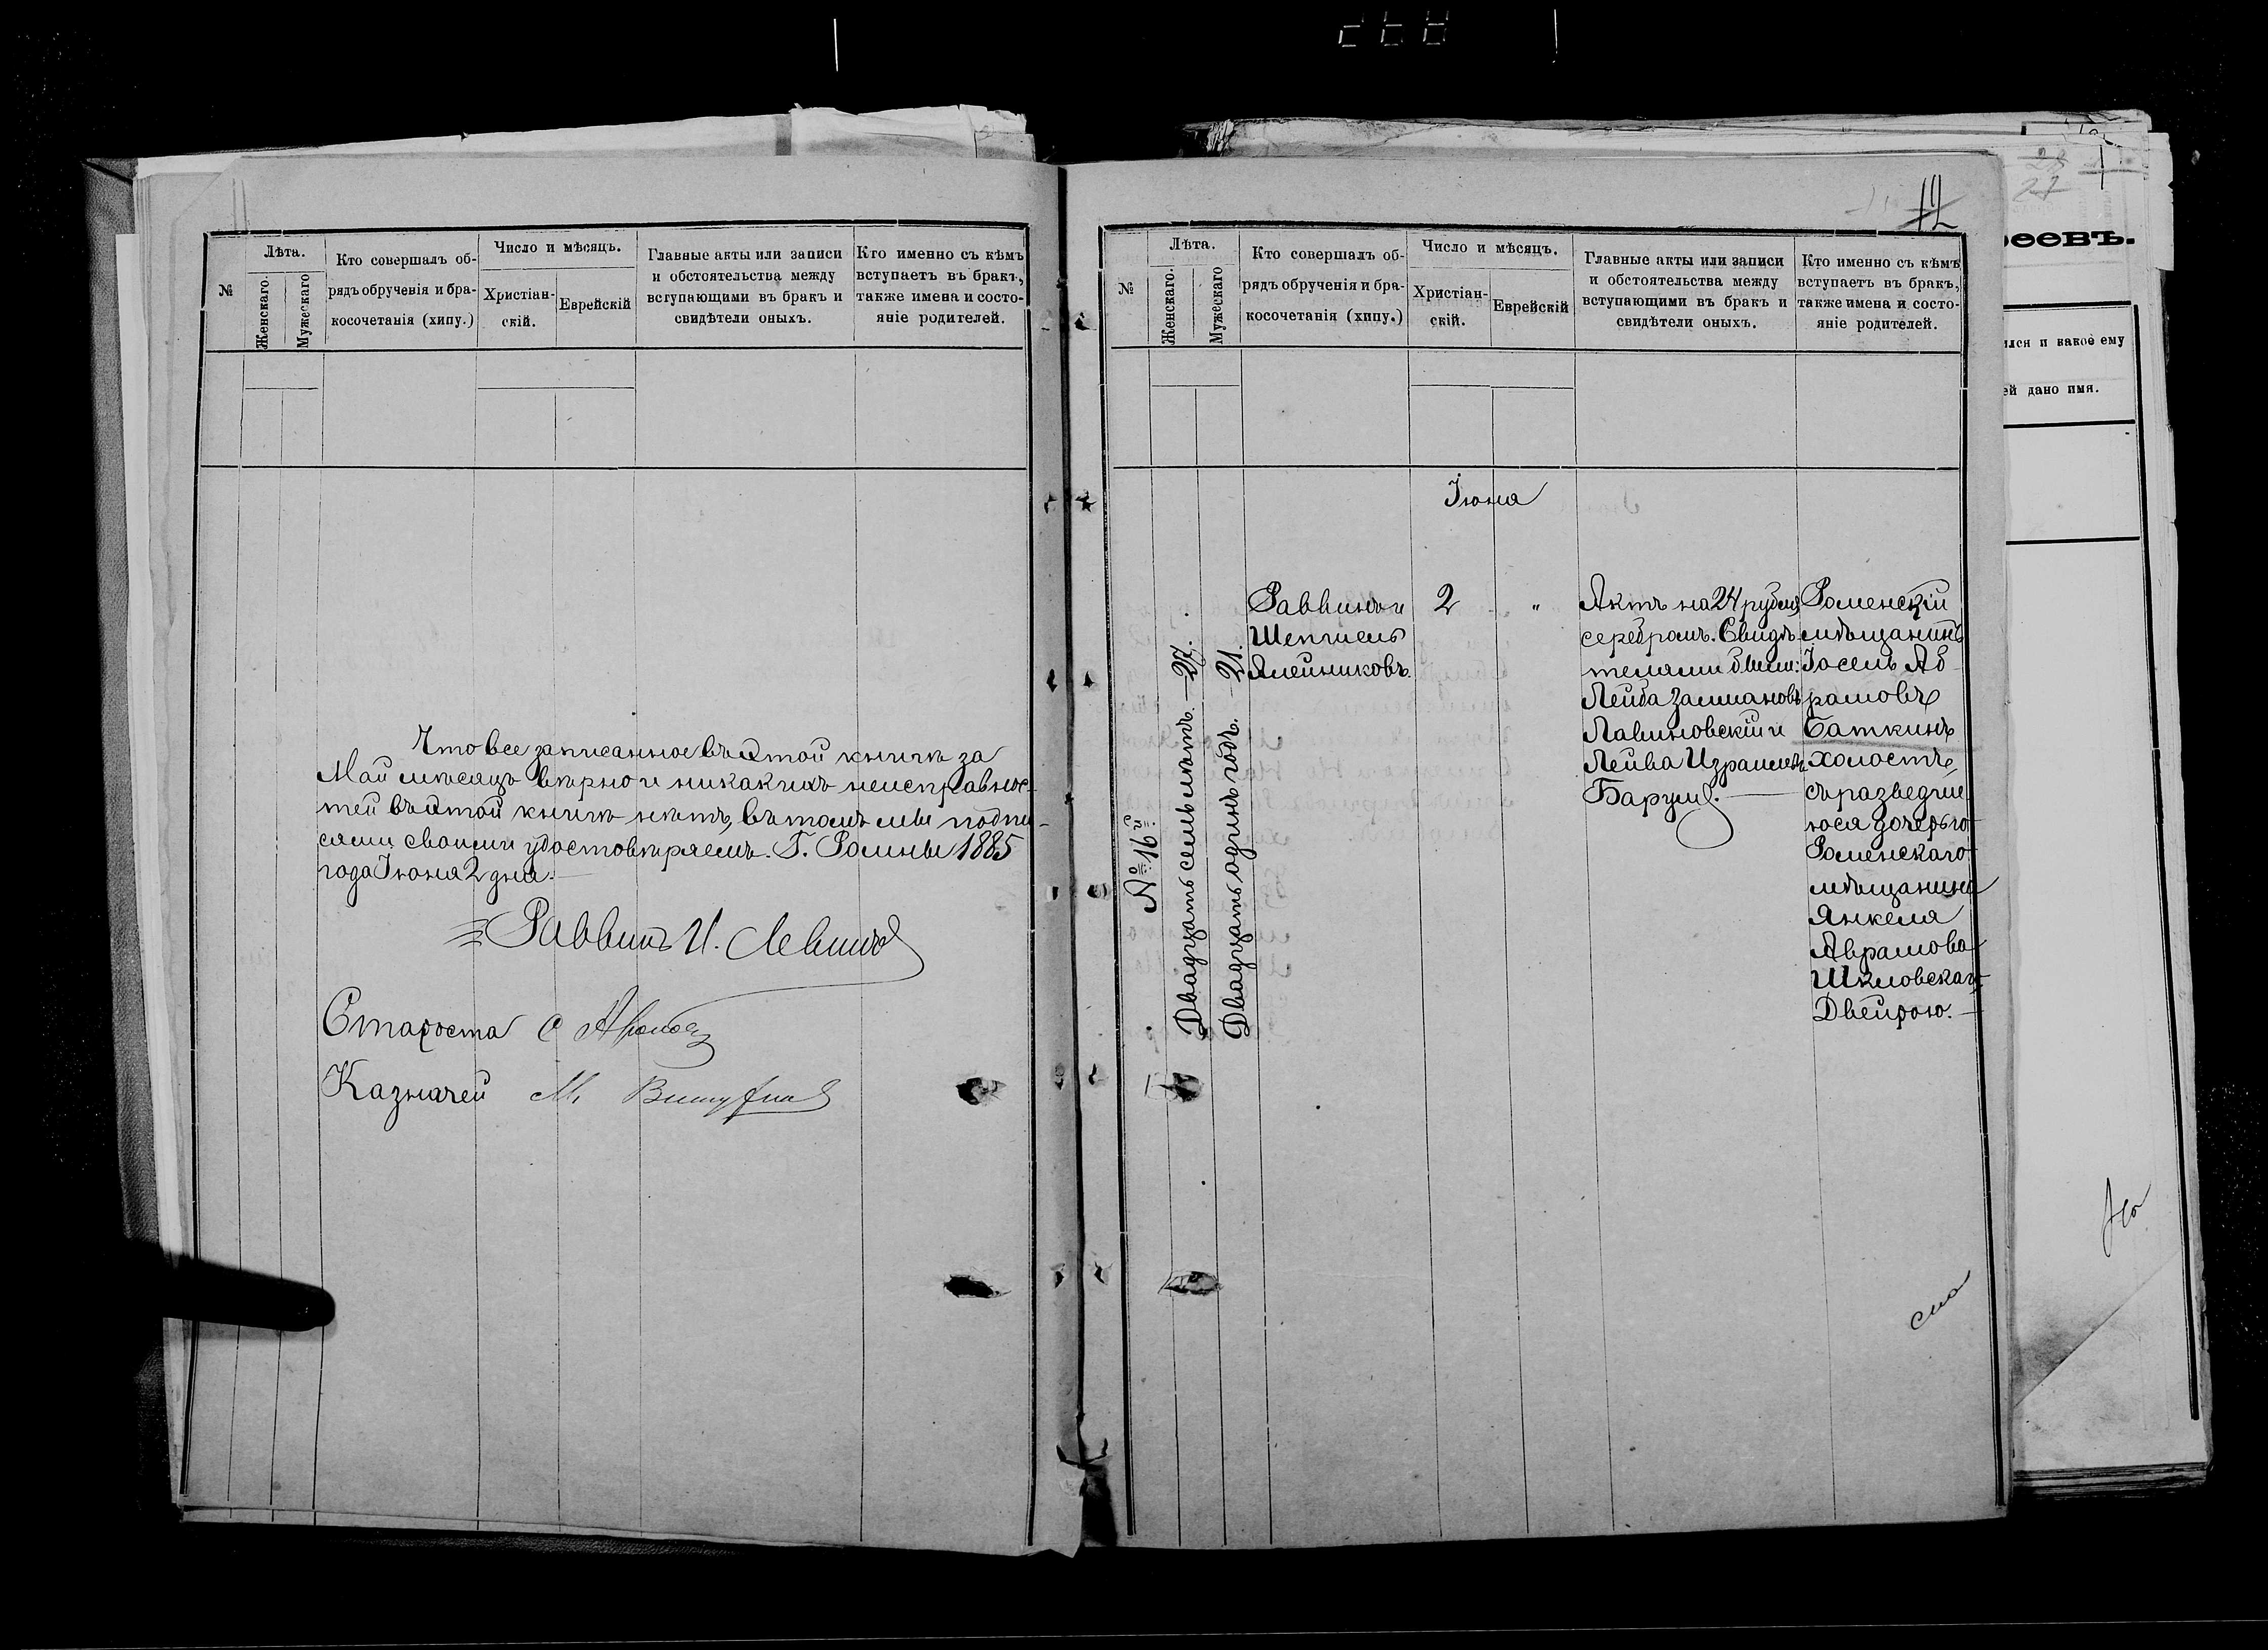 Лѣта.
Число и мѣсяцъ.
№
Женскаго.
Мужескаго
Кто совершалъ об-
рядъ обрученія и бра-
косочетанія (хипу.)
Христіан-
скій.
Еврейскій
Главные акты или записи
и обстоятельства между
вступающими въ бракъ и
свидѣтели оныхъ.
Кто именно съ кѣмъ
вступаетъ въ бракъ,
также имена и состо-
яніе родителей.
Что все записанное въ этой книгѣ за
Май мѣсяцъ вѣрно и никакихъ неисправнос-
тей въ этой книгѣ нѣтъ, въ томъ мы подпи-
сями своими удостовѣряемъ. Г. Ромны 1885
года Іюня 2 дня.
Раввинъ И. Левинъ
Староста
Казначей М.
12
Лѣта.
Число и мѣсяцъ.
№
Женскаго.
Мужескаго
Кто совершалъ об-
рядъ обрученія и бра-
косочетанія (хипу.)
Христіан-
скій.
Еврейскій
Главные акты или записи
и обстоятельства между
вступающими въ бракъ и
свидѣтели оныхъ.
Кто именно съ кѣмъ
вступаетъ въ бракъ,
также имена и состо-
яніе родителей.
Іюня
№ 16й.
Двадцать семь лѣтъ. 27.
Двадцать одинъ годъ. 21.
Раввинъ и
Шепшель
Алейниковъ.
2
"
Актъ на 24 рубля
серебромъ. Свидѣ-
телями были:
Лейба Залмановъ
Лавиновскій и
Лейва Израилевъ
Барум.
Роменскій
мѣщанинъ
Іосель Аб-
рамовъ
Баткинъ
холостъ,
съ разведше-
юся дочерью
Роменскаго
мѣщанина
Янкеля
Аврамова
Шкловскаго
Двейрою.
27
еевъ.
ился и какое ему
ей дано имя.